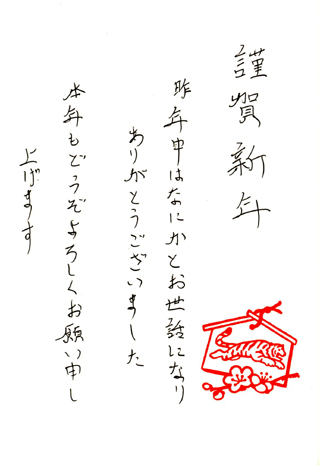 謹賀新年
昨年中はなにかとお世話になり
ありがとうございました
本年もどうぞよろしくお願い申し
上げます